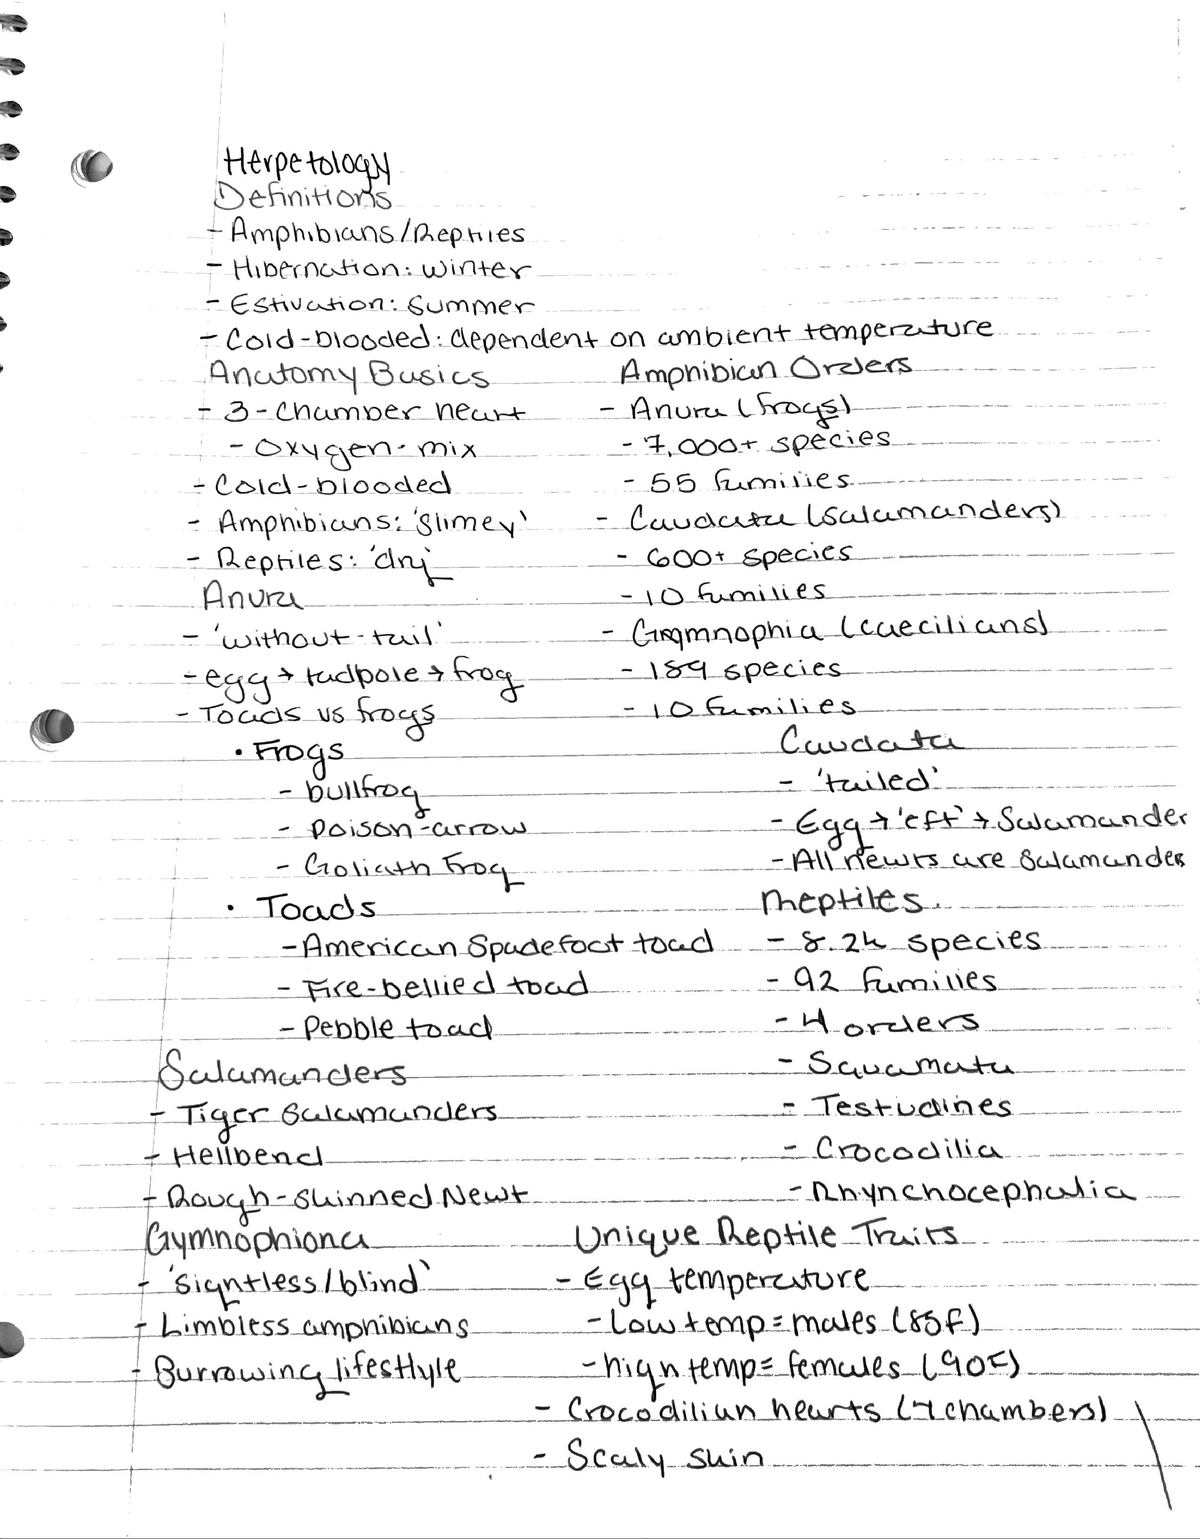 Herpetology
Definitions
- Amphibians/Reptiles
- Hibernation: winter
- Estivation: summer
- Cold-blooded: dependent on ambient temperature
Anatomy Basics
- 3-chamber heart
- Oxygen-mix
- Cold-blooded
- Amphibians: 'slimey'
- Reptiles: 'dry'
Anura
- 'without-tail'
- egg → tadpole → frog
- Toads vs frogs
• Frogs
- bullfrog
- poison-arrow
- Goliath Frog
• Toads
- American Spadefoot toad
- Fire-bellied toad
- Pebble toad
Salamanders
- Tiger Salamanders
- Hellbend
- Rough-skinned Newt
Gymnophiona
- 'sightless/blind'
- Limbless amphibians
- Burrowing lifestlyle
Amphibian Orders
- Anura (frogs)
- 7,000+ species
- 55 families
- Caudata (salamanders)
- 600+ species
- 10 families
- Gmnophia (caecilians)
- 189 species
- 10 families
Caudata
- 'tailed'
- Egg → 'eft' → Salamander
- All newts are Salamander
Reptiles
- 8.2k species
- 92 families
- 4 orders
- Squamata
- Testudines
- Crocodilia
- Rhynchocephalia
Unique Reptile Traits
- Egg temperature
- low temp = males (85F)
- high temp = females (90F)
- Crocodilian hearts (4 chambers)
- Scaly skin